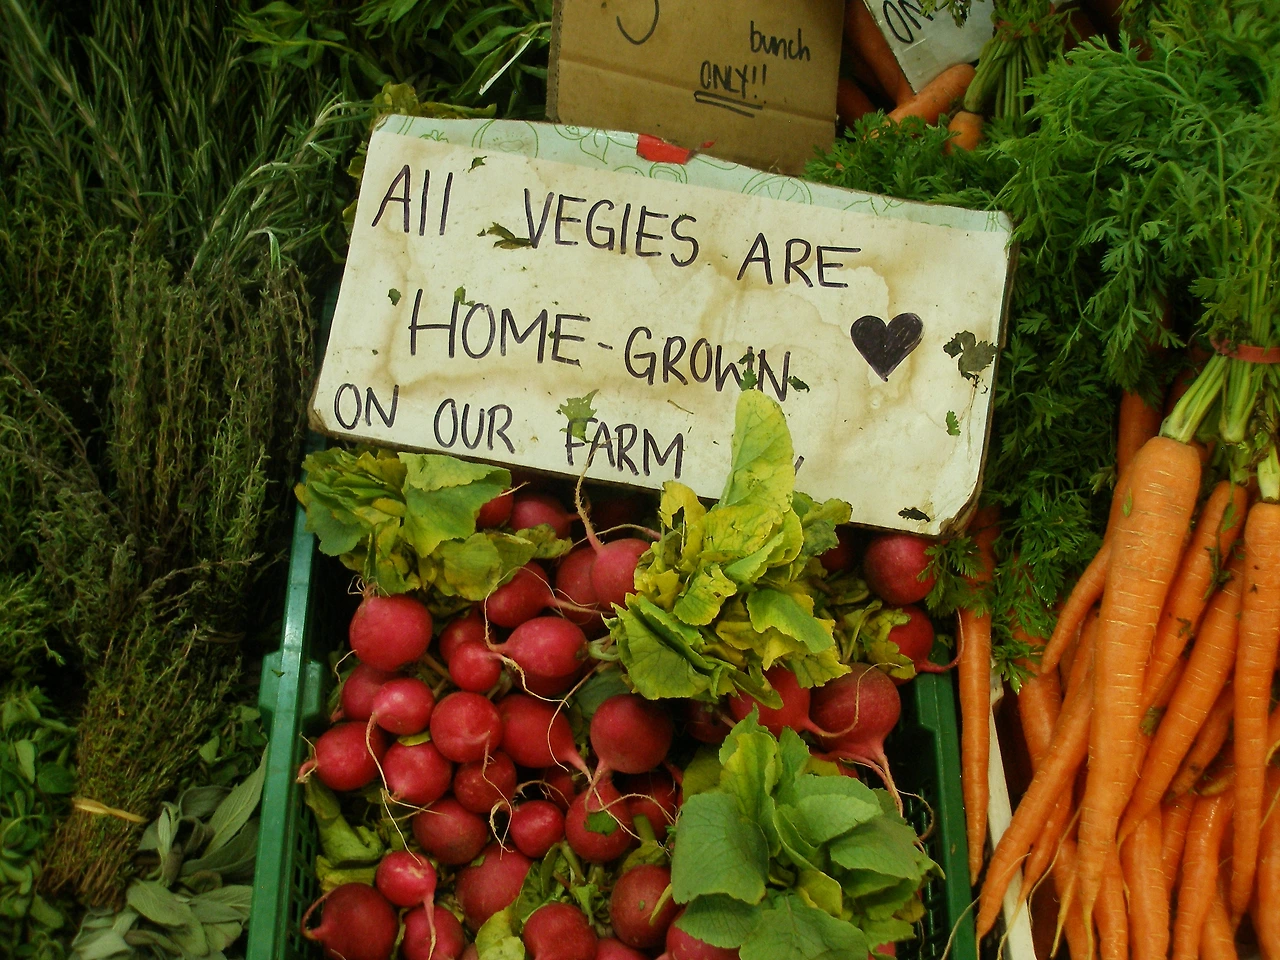 bunch
ONLY!!
All VEGIES ARE
HOME-GROWN
ON OUR FARM